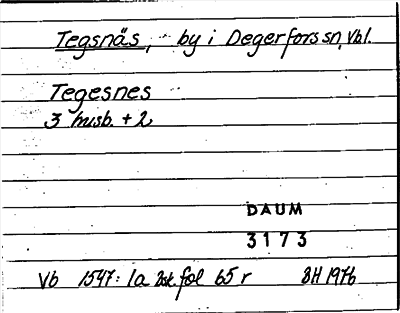 Tegsnäs, by i Degerfors sn, Vbl.
Tegesnes
3 husb. + 2
DAUM
3173
Vb 1547: 1a fol 65 r BH 1976